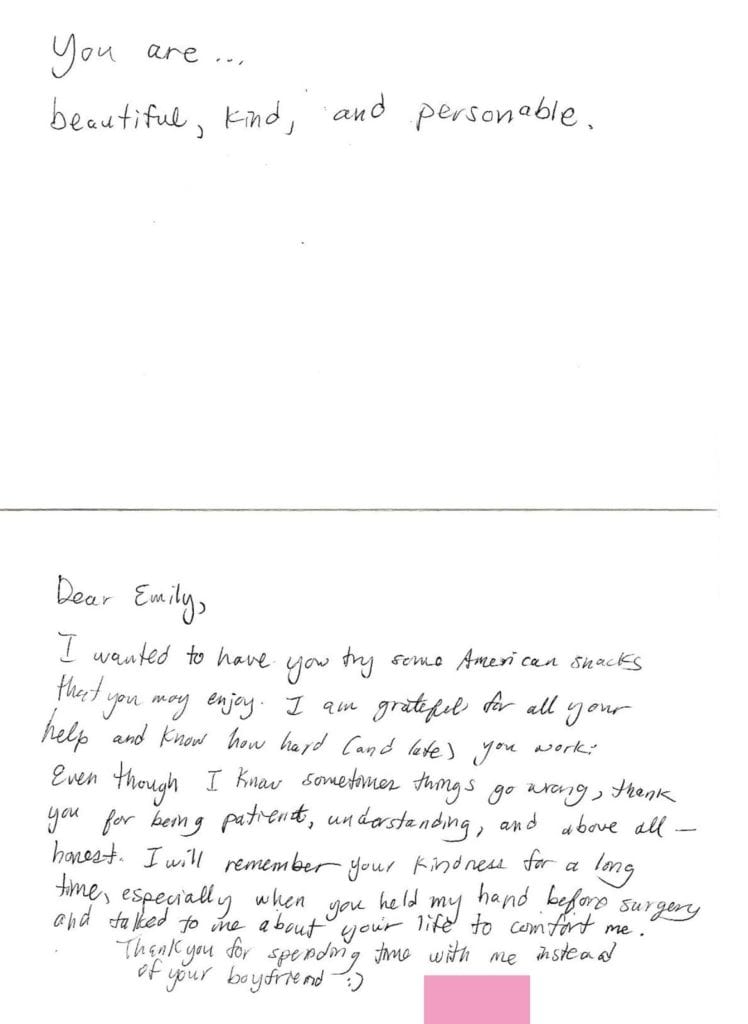 You are ...
beautiful, kind, and personable.
Dear Emily,
I wanted to have you try some American snacks
that you may enjoy. I am grateful for all your
help and know how hard (and late) you work.
Even though I know sometimes things go wrong, thank
you for being patient, understanding, and above all —
honest. I will remember your kindness for a long
time, especially when you held my hand before surgery
and talked to me about your life to comfort me.
Thank you for spending time with me instead
of your boyfriend :)